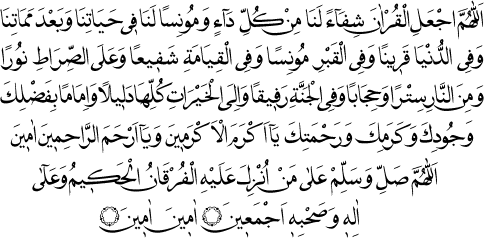 اَللّٰهُمَّ اجْعَلِ الْقُرْاٰنَ شِفَآءً لَنَا مِنْ كُلِّ دَآءٍ وَمُونِسًا لَنَا فِى حَيَاتِنَا وَبَعْدَ مَمَاتِنَا
وَفِى الدُّنْيَا قَرِينًا وَفِى الْقَبْرِ مُونِسًا وَفِى الْقِيَامَةِ شَفِيعًا وَعَلَى الصِّرَاطِ نُورًا
وَمِنَ النَّارِ سِتْرًا وَحِجَابًا وَفِى الْجَنَّةِ رَفِيقًا وَاِلَى الْخَيْرَاتِ كُلِّهَا دَلِيلًا وَاِمَامًا بِفَضْلِكَ
وَجُودِكَ وَكَرَمِكَ وَرَحْمَتِكَ يَآ اَكْرَمَ الْاَكْرَمِينَ وَيَآ اَرْحَمَ الرَّاحِمِينَ اٰمِينَ
اَللّٰهُمَّ صَلِّ وَسَلِّمْ عَلٰى مَنْ اُنْزِلَ عَلَيْهِ الْفُرْقَانُ الْحَكِيمُ وَعَلٰٓى
اٰلِهِ وَصَحْبِهِ اَجْمَعِينَ ۝ اٰمِينَ اٰمِينَ ۝